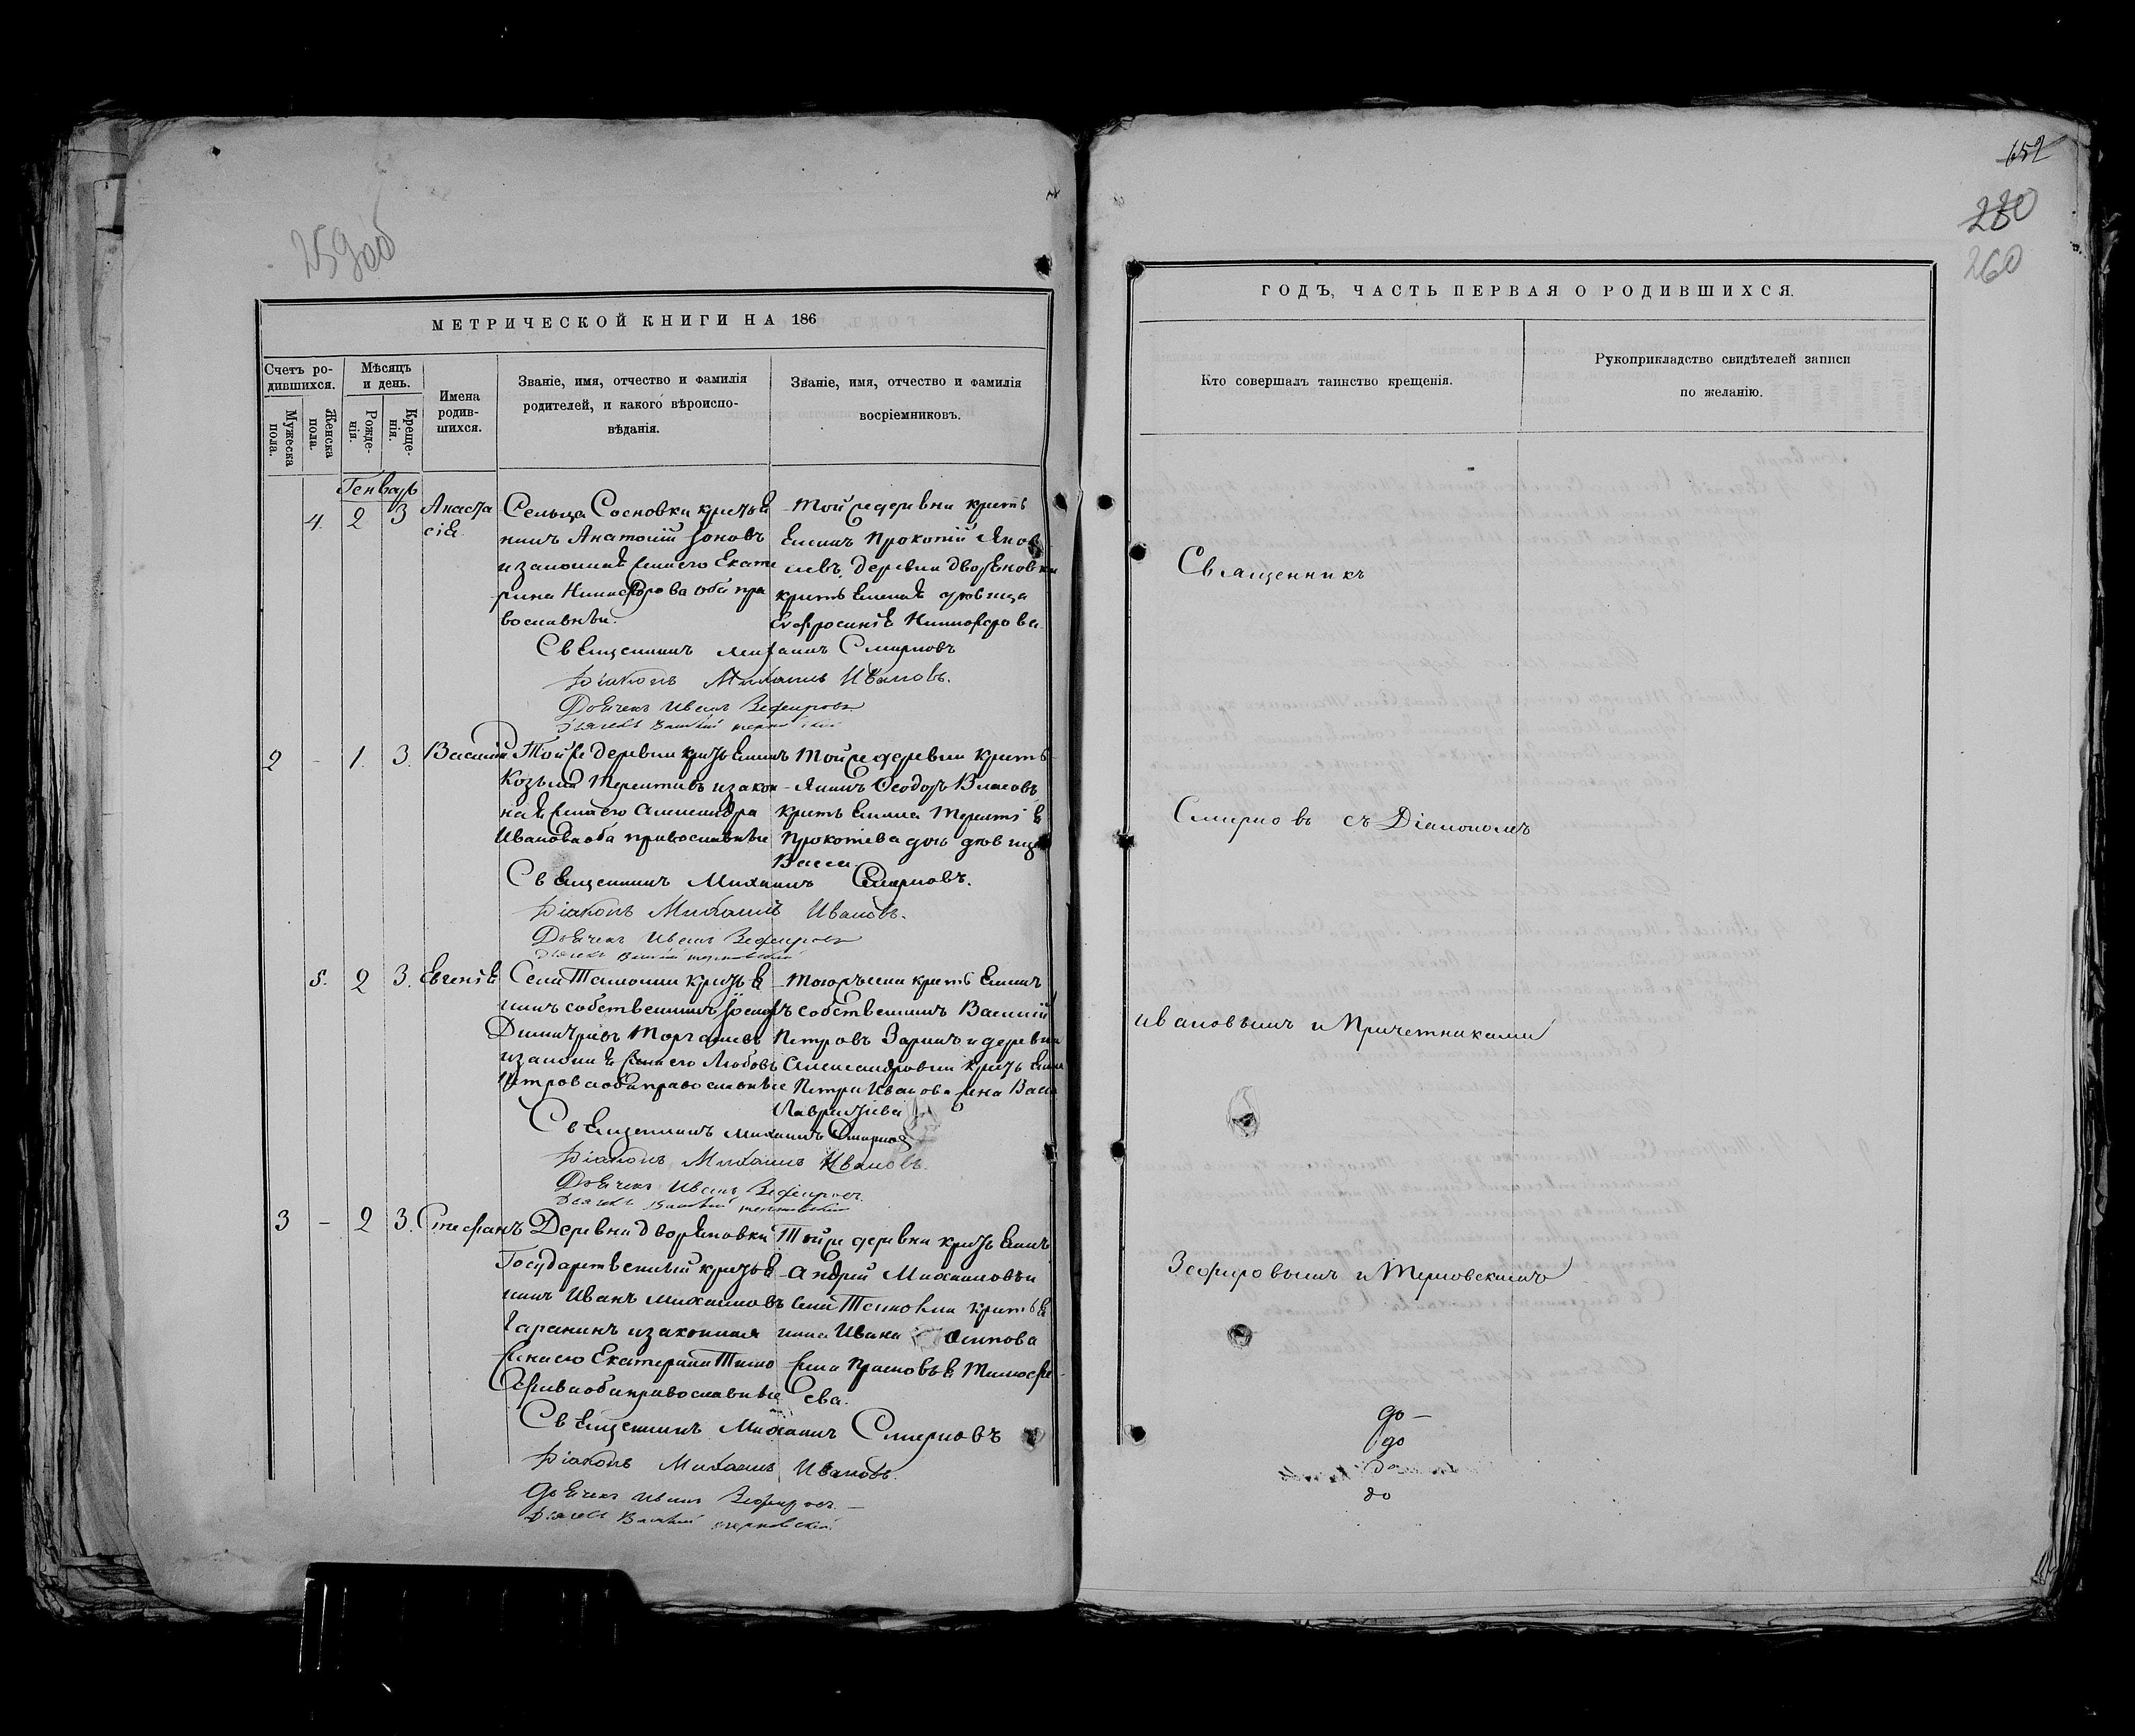 259 об
МЕТРИЧЕСКОЙ КНИГИ НА 186
Счетъ ро-
дившихся.
Мѣсяцъ
и день.
Мужеска
пола.
Женска
пола.
Рожде-
нія.
Креще-
нія.
Имена
родив-
шихся.
Званіе, имя, отчество и фамилія
родителей, и какого вѣроиспо-
вѣданія.
Званіе, имя, отчество и фамилія
восріемниковъ.
Генварь
4. 2 3 Анаста
сія
Сельца Сосновки крестья
нинъ Анатолій Іоновъ
и законная жена его Екате
рина Никифорова оба пра
вославные.
Той же деревни кресть
янинъ Прокопій Яков
левъ, деревни Дворяновки
крестьянская дѣвица
Евфросинія Никифорова
Священникъ Михаилъ Смирновъ
Діаконъ Михаилъ Ивановъ.
Дьячекъ Иванъ Зефировъ
2 - 1. 3. Василій
Той же деревни крестьянинъ
Козьма Терентьевъ и закон
ная жена его Александра
Иванова оба православные
Той же деревни кресть
янинъ Ѳеодоръ Власовъ
Прокопіева дочь дѣвица
Васса.
Священникъ Михаилъ Смирновъ.
Діаконъ Михаилъ Ивановъ.
Дьячекъ Иванъ Зефировъ
5. 2 3. Евгенія
крестья
нинъ собственникъ Іосифъ
Димитріевъ
и законная жена его Любовь
Петрова оба православные
крестьянинъ
собственникъ Василій
Петровъ и деревни
Александровки крестьян
Петра Иванова жена Васса
Лаврентіева
Священникъ Михаилъ Смирновъ
Діаконъ Михаилъ Ивановъ.
Дьячекъ Иванъ Зефировъ.
3 - 2 3. Стефанъ
Деревни Дворяновки
Государственный крестья
нинъ Иванъ Михаиловъ
Гаранинъ и законная
жена его Екатерина Тимо
феева оба православные
Той же деревни крестьянинъ
Андрей Михаиловъ и
крестья
нина Ивана Осипова
жена Прасковья Тимофе
ева.
Священникъ Михаилъ Смирновъ
Діаконъ Михаилъ Ивановъ.
Дьячекъ Иванъ Зефировъ.
652
260
ГОДЪ, ЧАСТЬ ПЕРВАЯ О РОДИВШИХСЯ.
Кто совершалъ таинство крещенія.
Рукоприкладство свидѣтелей записи
по желанію.
Священникъ
Смирновъ съ Діакономъ
Ивановымъ и Причетниками
Зефировымъ и Терновскимъ